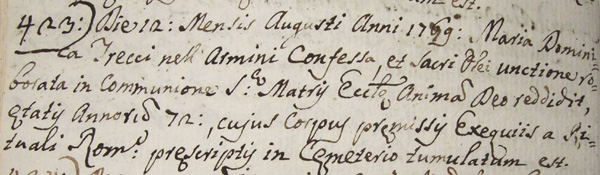 est.
423:) Die 12: Mensis Augusti Anni 1769: Maria Domini-
ca Trecci nell' Armini Confessa, et Sacri Olei unctione ro-
borata in Communione S. Matris Eccl. Animā Deo reddidit,
ętatis Annorū 72:, cujus Corpus pręmissis Exequiis a Ri-
tuali Rom: pręscriptis in Cęmeterio tumulatum est.